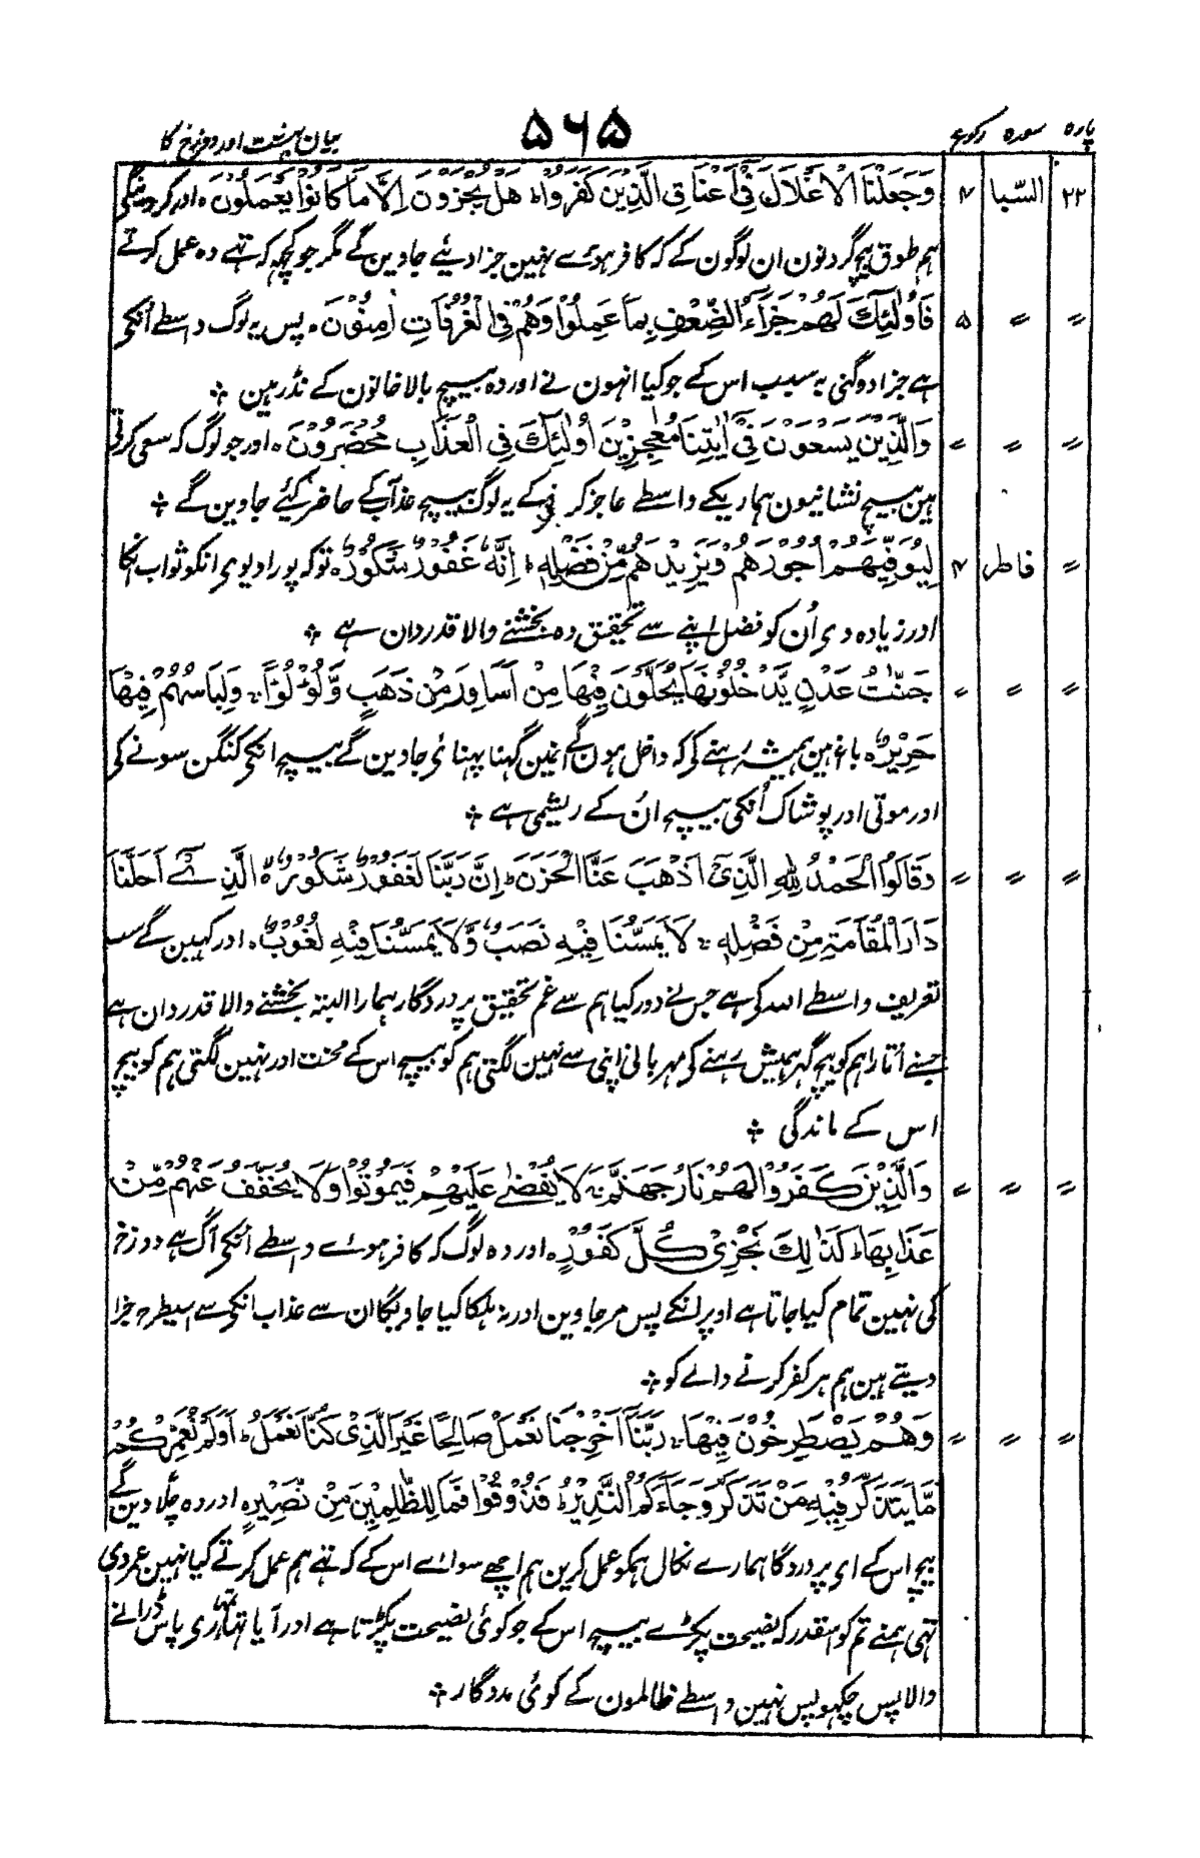 پارہ سورہ رکوع ۵۶۵ بیان بہشت اور دوزخ کا
۲۲ السّبا ۴ وَجَعَلْنَا الْاَغْلَالَ فِیْٓ اَعْنَاقِ الَّذِیْنَ كَفَرُوْا ؕ هَلْ یُجْزَوْنَ اِلَّا مَا كَانُوْا یَعْمَلُوْنَ ۰ اور کر دینگے
ہم طوق بیچ گردنون ان لوگون کے کہ کافر ہوے نہین جزا دیئے جاوین گے مگر جو کچھ کہ تہے وہ عمل کرتے
〃 〃 ۵ فَاُولٰٓئِكَ لَهُمْ جَزَآءُ الضِّعْفِ بِمَا عَمِلُوْا وَهُمْ فِی الْغُرُفٰتِ اٰمِنُوْنَ ۰ پس یہ لوگ واسطے اُنکی
ہے جزا دوگنی بہ سبب اس کے جو کیا انہون نے اور وہ بیچ بالا خانون کے نڈر ہین ؞
〃 〃 〃 وَالَّذِیْنَ یَسْعَوْنَ فِیْٓ اٰیٰتِنَا مُعٰجِزِیْنَ اُولٰٓئِكَ فِی الْعَذَابِ مُحْضَرُوْنَ ۰ اور جو لوگ کہ سعی کرتی
ہین بیچ نشانیون ہماریکے واسطے عاجز کرنیکے یہ لوگ بیچ عذاب کے حاضر کیئے جاوین گے ؞
〃 فاطر ۴ لِیُوَفِّیَهُمْ اُجُوْرَهُمْ وَیَزِیْدَهُمْ مِّنْ فَضْلِهٖ ؕ اِنَّهٗ غَفُوْرٌ شَكُوْرٌ ۰ توکہ پورا دیوی انکو ثواب انکا
اور زیادہ دی اُن کو فضل اپنے سے تحقیق وہ بخشنے والا قدردان ہے ؞
〃 〃 〃 جَنّٰتُ عَدْنٍ یَّدْخُلُوْنَهَا یُحَلَّوْنَ فِیْهَا مِنْ اَسَاوِرَ مِنْ ذَهَبٍ وَّلُؤْلُؤًا ۚ وَلِبَاسُهُمْ فِیْهَا
حَرِیْرٌ ۰ باغ ہین ہمیشہ رہنے کی کہ داخل ہون گے انمین گہنا پہنائی جاوین گے بیچ انکی کنگن سونے کی
اور موتی اور پوشاک اُنکی بیچ اُن کے ریشمی ہے ؞
〃 〃 〃 وَقَالُوا الْحَمْدُ لِلّٰهِ الَّذِیْٓ اَذْهَبَ عَنَّا الْحَزَنَ ؕ اِنَّ رَبَّنَا لَغَفُوْرٌ شَكُوْرٌ ۰ الَّذِیْٓ اَحَلَّنَا
دَارَ الْمُقَامَةِ مِنْ فَضْلِهٖ ۚ لَا یَمَسُّنَا فِیْهِ نَصَبٌ وَّلَا یَمَسُّنَا فِیْهِ لُغُوْبٌ ۰ اور کہین گے سب
تعریف واسطے اللہ کی ہے جس نے دور کیا ہم سے غم تحقیق پروردگار ہمارا البتہ بخشنے والا قدردان ہے
جسنے اُتارا ہم کو بیچ گہر ہمیش رہنے کی مہربانی اپنی سے نہین لگتی ہم کو بیچ اس کے محنت اور نہین لگتی ہم کو بیچ
اس کے ماندگی ؞
〃 〃 〃 وَالَّذِیْنَ كَفَرُوْا لَهُمْ نَارُ جَهَنَّمَ ۚ لَا یُقْضٰی عَلَیْهِمْ فَیَمُوْتُوْا وَلَا یُخَفَّفُ عَنْهُمْ مِّنْ
عَذَابِهَا ؕ كَذٰلِكَ نَجْزِیْ كُلَّ كَفُوْرٍ ۰ اور وہ لوگ کہ کافر ہوئے واسطے اُنکی آگ ہے دوزخ
کی نہین تمام کیا جاتا ہے اوپر انکے پس مر جاوین اور نہ ہلکا کیا جاویگا ان سے عذاب انکی سے اسیطرح جزا
دیتے ہین ہم ہر کفر کرنے والے کو ؞
〃 〃 〃 وَهُمْ یَصْطَرِخُوْنَ فِیْهَا ۚ رَبَّنَآ اَخْرِجْنَا نَعْمَلْ صَالِحًا غَیْرَ الَّذِیْ كُنَّا نَعْمَلُ ؕ اَوَلَمْ نُعَمِّرْكُمْ
مَّا یَتَذَكَّرُ فِیْهِ مَنْ تَذَكَّرَ وَجَآءَكُمُ النَّذِیْرُ ؕ فَذُوْقُوْا فَمَا لِلظّٰلِمِیْنَ مِنْ نَّصِیْرٍ ۰ اور وہ چلّاوین گے
بیچ اس کے ای پروردگا ہمارے نکال ہمکو عمل کرین ہم اچھے سوائے اس کے کہ تہے ہم عمل کرتے کیا نہین عمر دی
تہی ہمنے تم کو اسقدر کہ نصیحت پکڑے بیچ اس کے جو کوئی نصیحت پکڑتا ہے اور آیا تہا تمہاری پاس ڈرانے
والا پس چکہو پس نہین واسطے ظالمون کے کوئی مددگار ؞